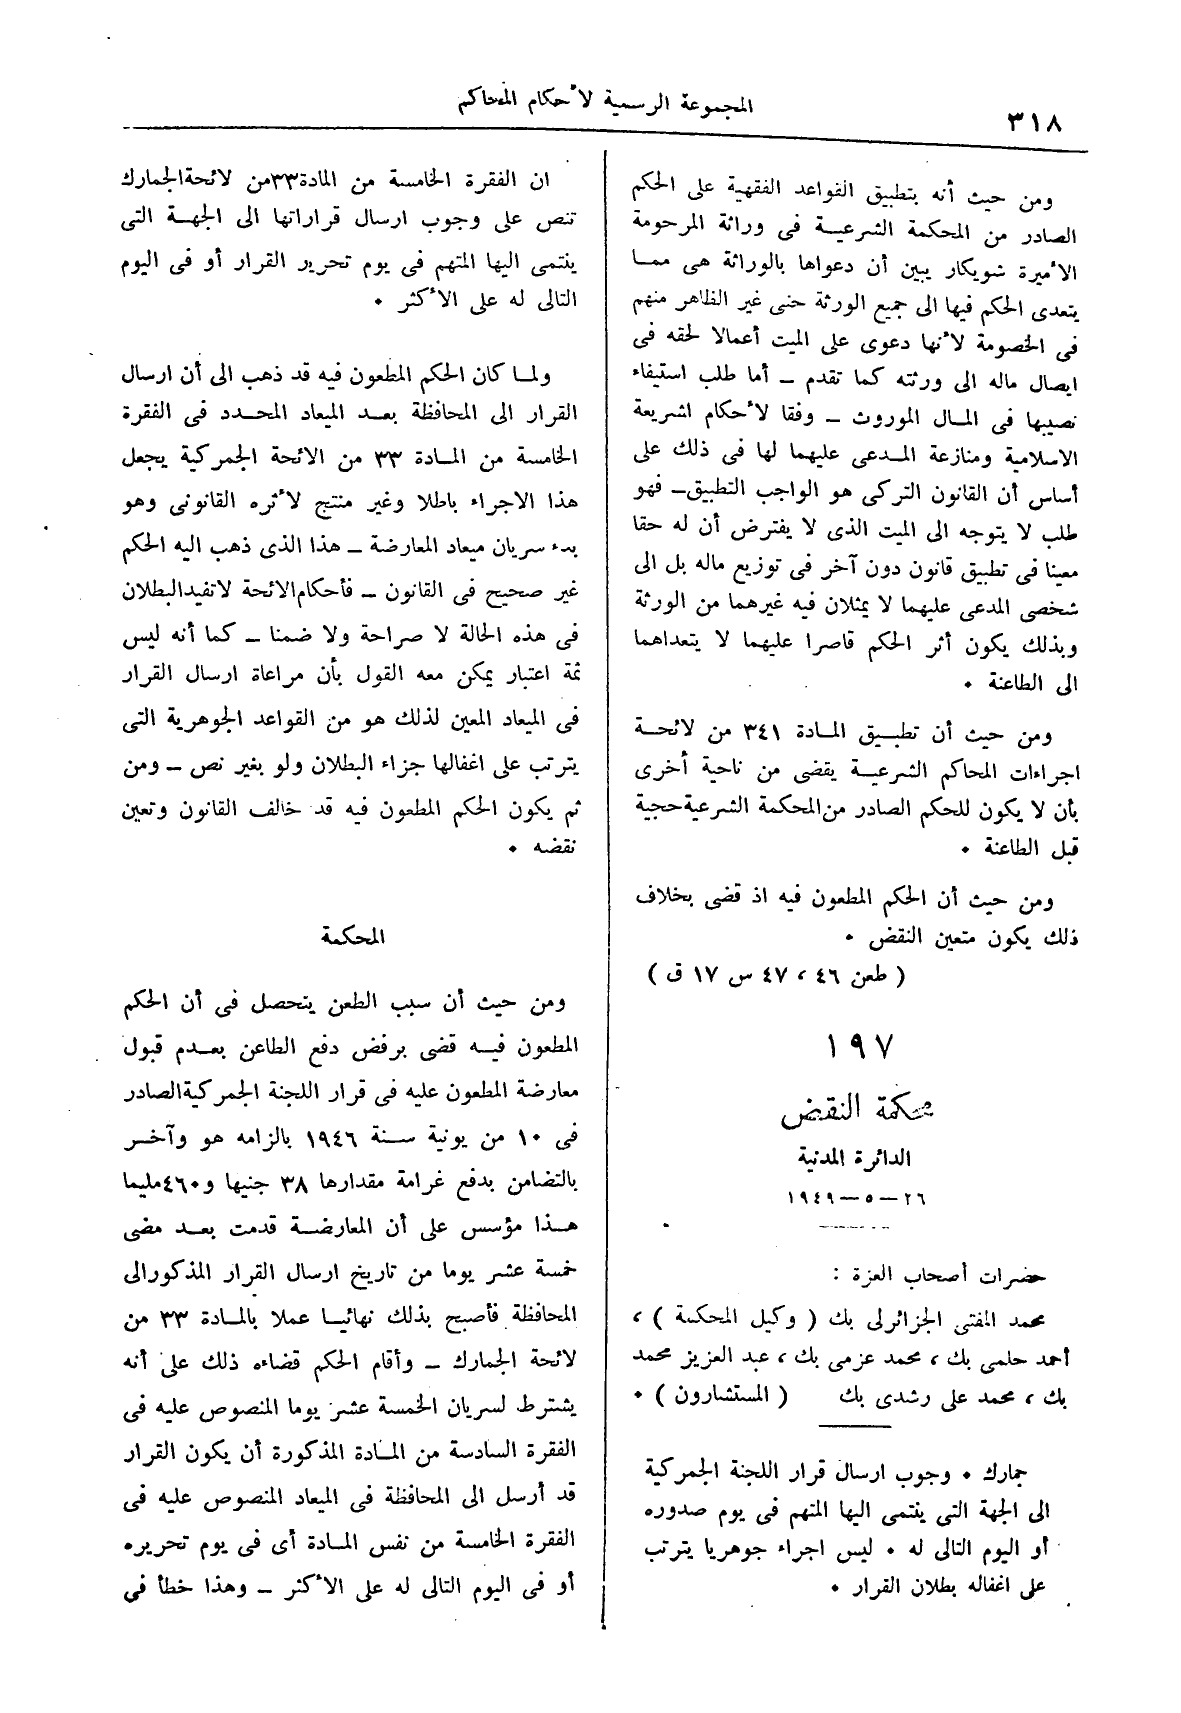 ٣١٨
المجموعة الرسمية لأحكام المحاكم
ومن حيث أنه بتطبيق القواعد الفقهية على الحكم
الصادر من المحكمة الشرعية فى وراثة المرحومة
الأميرة شويكار يبين أن دعواها بالوراثة هى مما
يتعدى الحكم فيها الى جميع الورثة حتى غير الظاهر منهم
فى الخصومة لأنها دعوى على الميت أعمالا لحقه فى
ايصال ماله الى ورثته كما تقدم – أما طلب استيفاء
نصيبها فى المال الموروث – وفقا لأحكام الشريعة
الاسلامية ومنازعة المدعى عليهما لها فى ذلك على
أساس أن القانون التركى هو الواجب التطبيق – فهو
طلب لا يتوجه الى الميت الذى لا يفترض أن له حقا
معينا فى تطبيق قانون دون آخر فى توزيع ماله بل الى
شخصى المدعى عليهما لا يمثلان فيه غيرهما من الورثة
وبذلك يكون أثر الحكم قاصرا عليهما لا يتعداهما
الى الطاعنة .
ومن حيث أن تطبيق المادة ٣٤١ من لائحة
اجراءات المحاكم الشرعية يقضى من ناحية أخرى
بأن لا يكون للحكم الصادر من المحكمة الشرعية حجية
قبل الطاعنة .
ومن حيث أن الحكم المطعون فيه اذ قضى بخلاف
ذلك يكون متعين النقض .
( طعن ٤٦ ، ٤٧ س ١٧ ق )
١٩٧
محكمة النقض
الدائرة المدنية
٢٦ – ٥ – ١٩٤٩
حضرات أصحاب العزة :
محمد المفتى الجزائرلى بك ( وكيل المحكمة ) ،
أحمد حلمى بك ، محمد عزمى بك ، عبد العزيز محمد
بك ، محمد على رشدى بك ( المستشارون ) .
جمارك . وجوب ارسال قرار اللجنة الجمركية
الى الجهة التى ينتمى اليها المتهم فى يوم صدوره
أو اليوم التالى له . ليس اجراء جوهريا يترتب
على اغفاله بطلان القرار .
ان الفقرة الخامسة من المادة ٣٣ من لائحة الجمارك
تنص على وجوب ارسال قراراتها الى الجهة التى
ينتمى اليها المتهم فى يوم تحرير القرار أو فى اليوم
التالى له على الأكثر .
ولما كان الحكم المطعون فيه قد ذهب الى أن ارسال
القرار الى المحافظة بعد الميعاد المحدد فى الفقرة
الخامسة من المادة ٣٣ من الائحة الجمركية يجعل
هذا الاجراء باطلا وغير منتج لأثره القانونى وهو
بدء سريان ميعاد المعارضة – هذا الذى ذهب اليه الحكم
غير صحيح فى القانون – فأحكام الائحة لا تفيد البطلان
فى هذه الحالة لا صراحة ولا ضمنا – كما أنه ليس
ثمة اعتبار يمكن معه القول بأن مراعاة ارسال القرار
فى الميعاد المعين لذلك هو من القواعد الجوهرية التى
يترتب على اغفالها جزاء البطلان ولو بغير نص – ومن
ثم يكون الحكم المطعون فيه قد خالف القانون وتعين
نقضه .
المحكمة
ومن حيث أن سبب الطعن يتحصل فى أن الحكم
المطعون فيه قضى برفض دفع الطاعن بعدم قبول
معارضة المطعون عليه فى قرار اللجنة الجمركية الصادر
فى ١٠ من يونية سنة ١٩٤٦ بالزامه هو وآخر
بالتضامن بدفع غرامة مقدارها ٣٨ جنيها و٤٦٠ مليما
هذا مؤسس على أن المعارضة قدمت بعد مضى
خمسة عشر يوما من تاريخ ارسال القرار المذكور الى
المحافظة فأصبح بذلك نهائيا عملا بالمادة ٣٣ من
لائحة الجمارك – وأقام الحكم قضاءه ذلك على أنه
يشترط لسريان الخمسة عشر يوما المنصوص عليه فى
الفقرة السادسة من المادة المذكورة أن يكون القرار
قد أرسل الى المحافظة فى الميعاد المنصوص عليه فى
الفقرة الخامسة من نفس المادة أى فى يوم تحريره
أو فى اليوم التالى له على الأكثر – وهذا خطأ فى